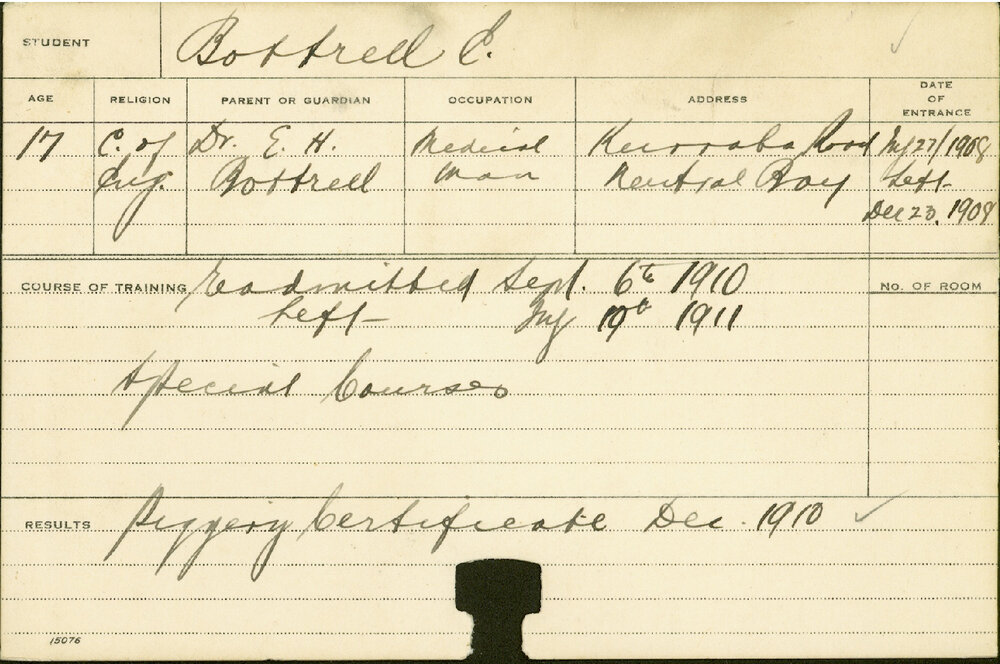 STUDENT Bottrell C.
AGE RELIGION PARENT OR GUARDIAN OCCUPATION ADDRESS DATE OF ENTRANCE
17 C. of Dr. E. H. Medical Kurraba Road 27/1908
Eng. Bottrell Man Neutral Bay Left
Dec 23, 1908
COURSE OF TRAINING Readmitted Sept. 6th 1910 No. OF ROOM
Left 19th 1911
Special Courses
RESULTS Piggery Certificate Dec. 1910
15076